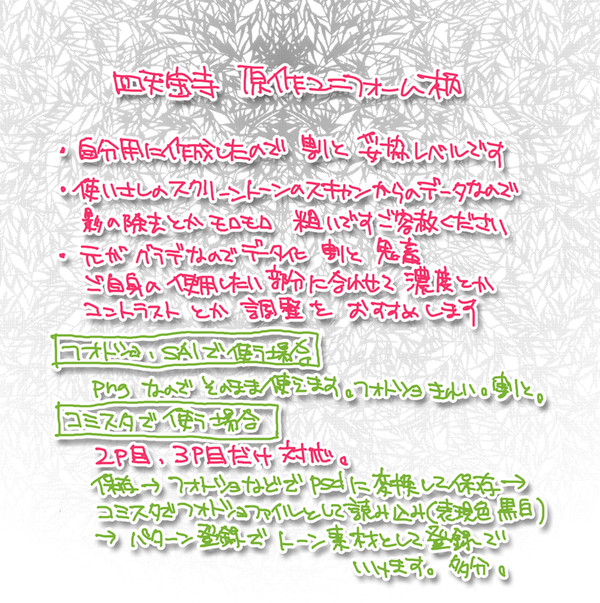 四天宝寺 原作ユニフォーム柄
・自分用に作成したので 割と 妥協レベルです
・使いさしのスクリーントーンのスキャンからのデータなので
影の除去とかモロモロ 粗いですご容赦ください
・元がグラデなのでデータ化 割と 鬼畜
ご自身の 使用したい部分に合わせて 濃度とか
コントラスト とか 調整を おすすめします
フォトショ、SAIで使う場合
pngなのでそのまま使えます。フォトショきれい。割と。
コミスタで使う場合
2P目、3P目だけ対応。
保存→フォトショなどでpsdに変換して保存→
コミスタでフォトショファイルとして読み込み(表現色 黒白)
→パターン登録でトーン素材として登録で
いけます。多分。